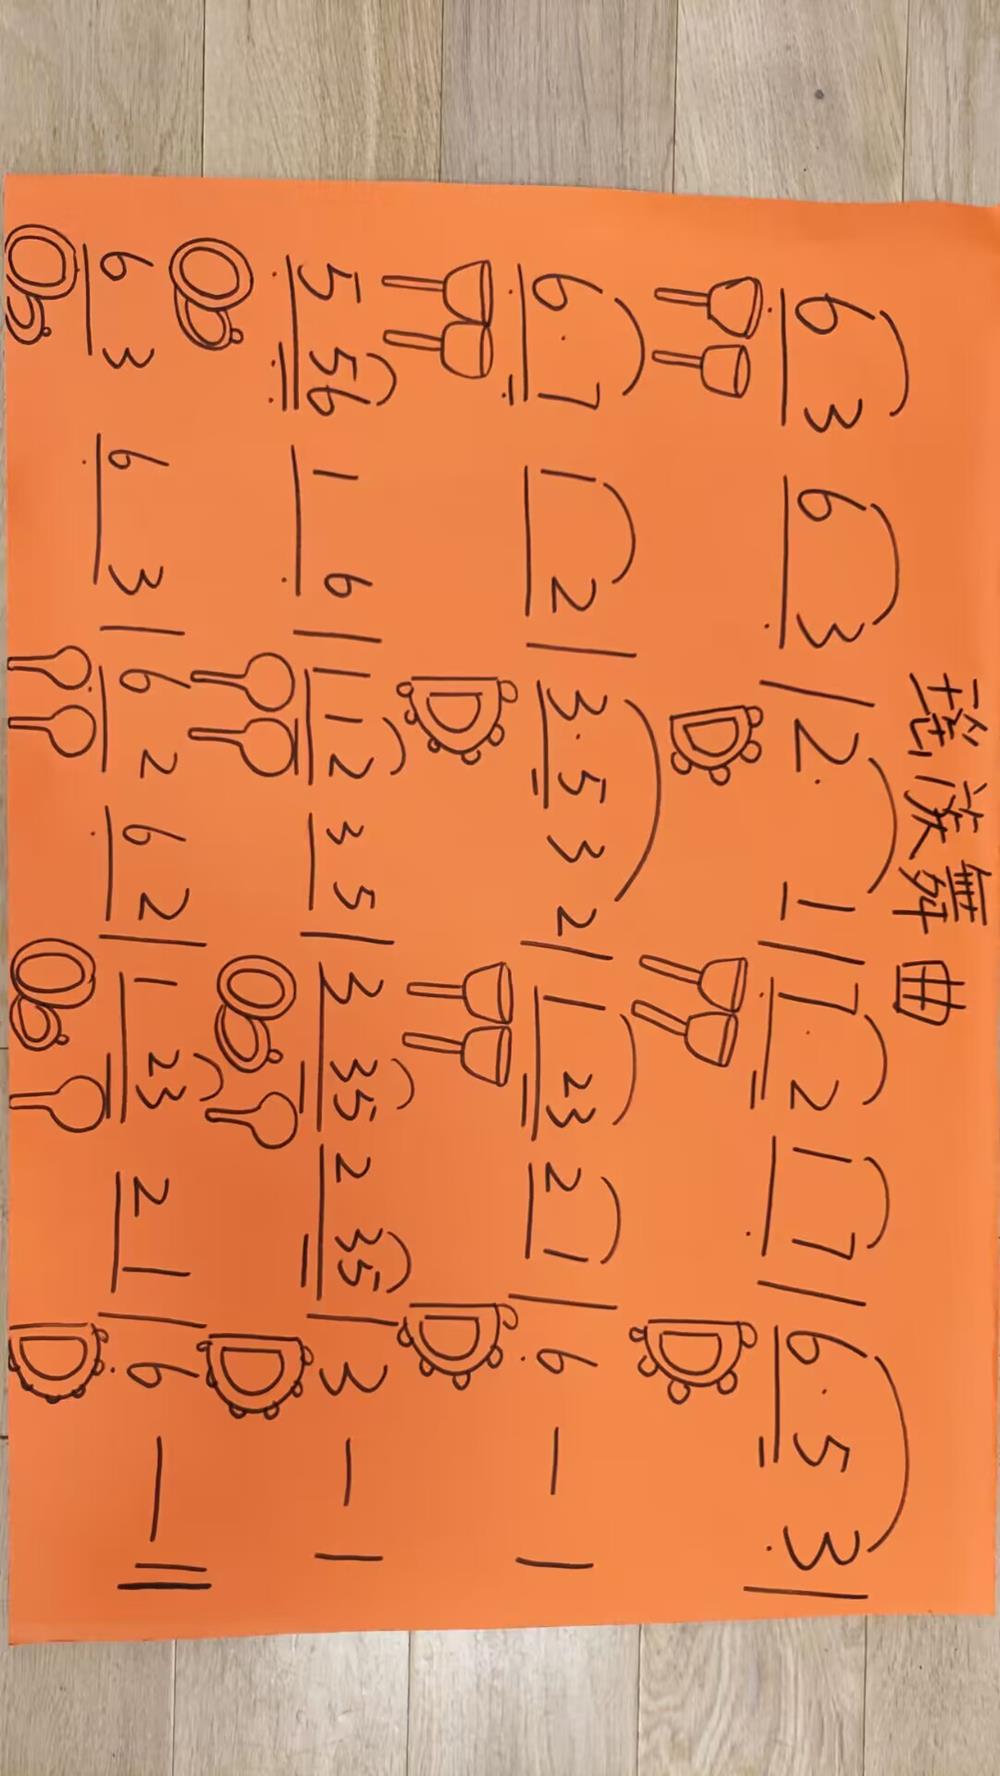 瑤族舞曲
6 3 6 3 | 2· 1 | 7· 2 1 7 | 6· 5 3 |
6· 7 1 2 | 3· 5 3 2 | 1 23 2 1 | 6 — |
5 56 1 6 | 1 12 3 5 | 3 35 2 35 | 3 — |
6 3 6 3 | 6 2 6 2 | 1 23 2 1 | 6 — ||